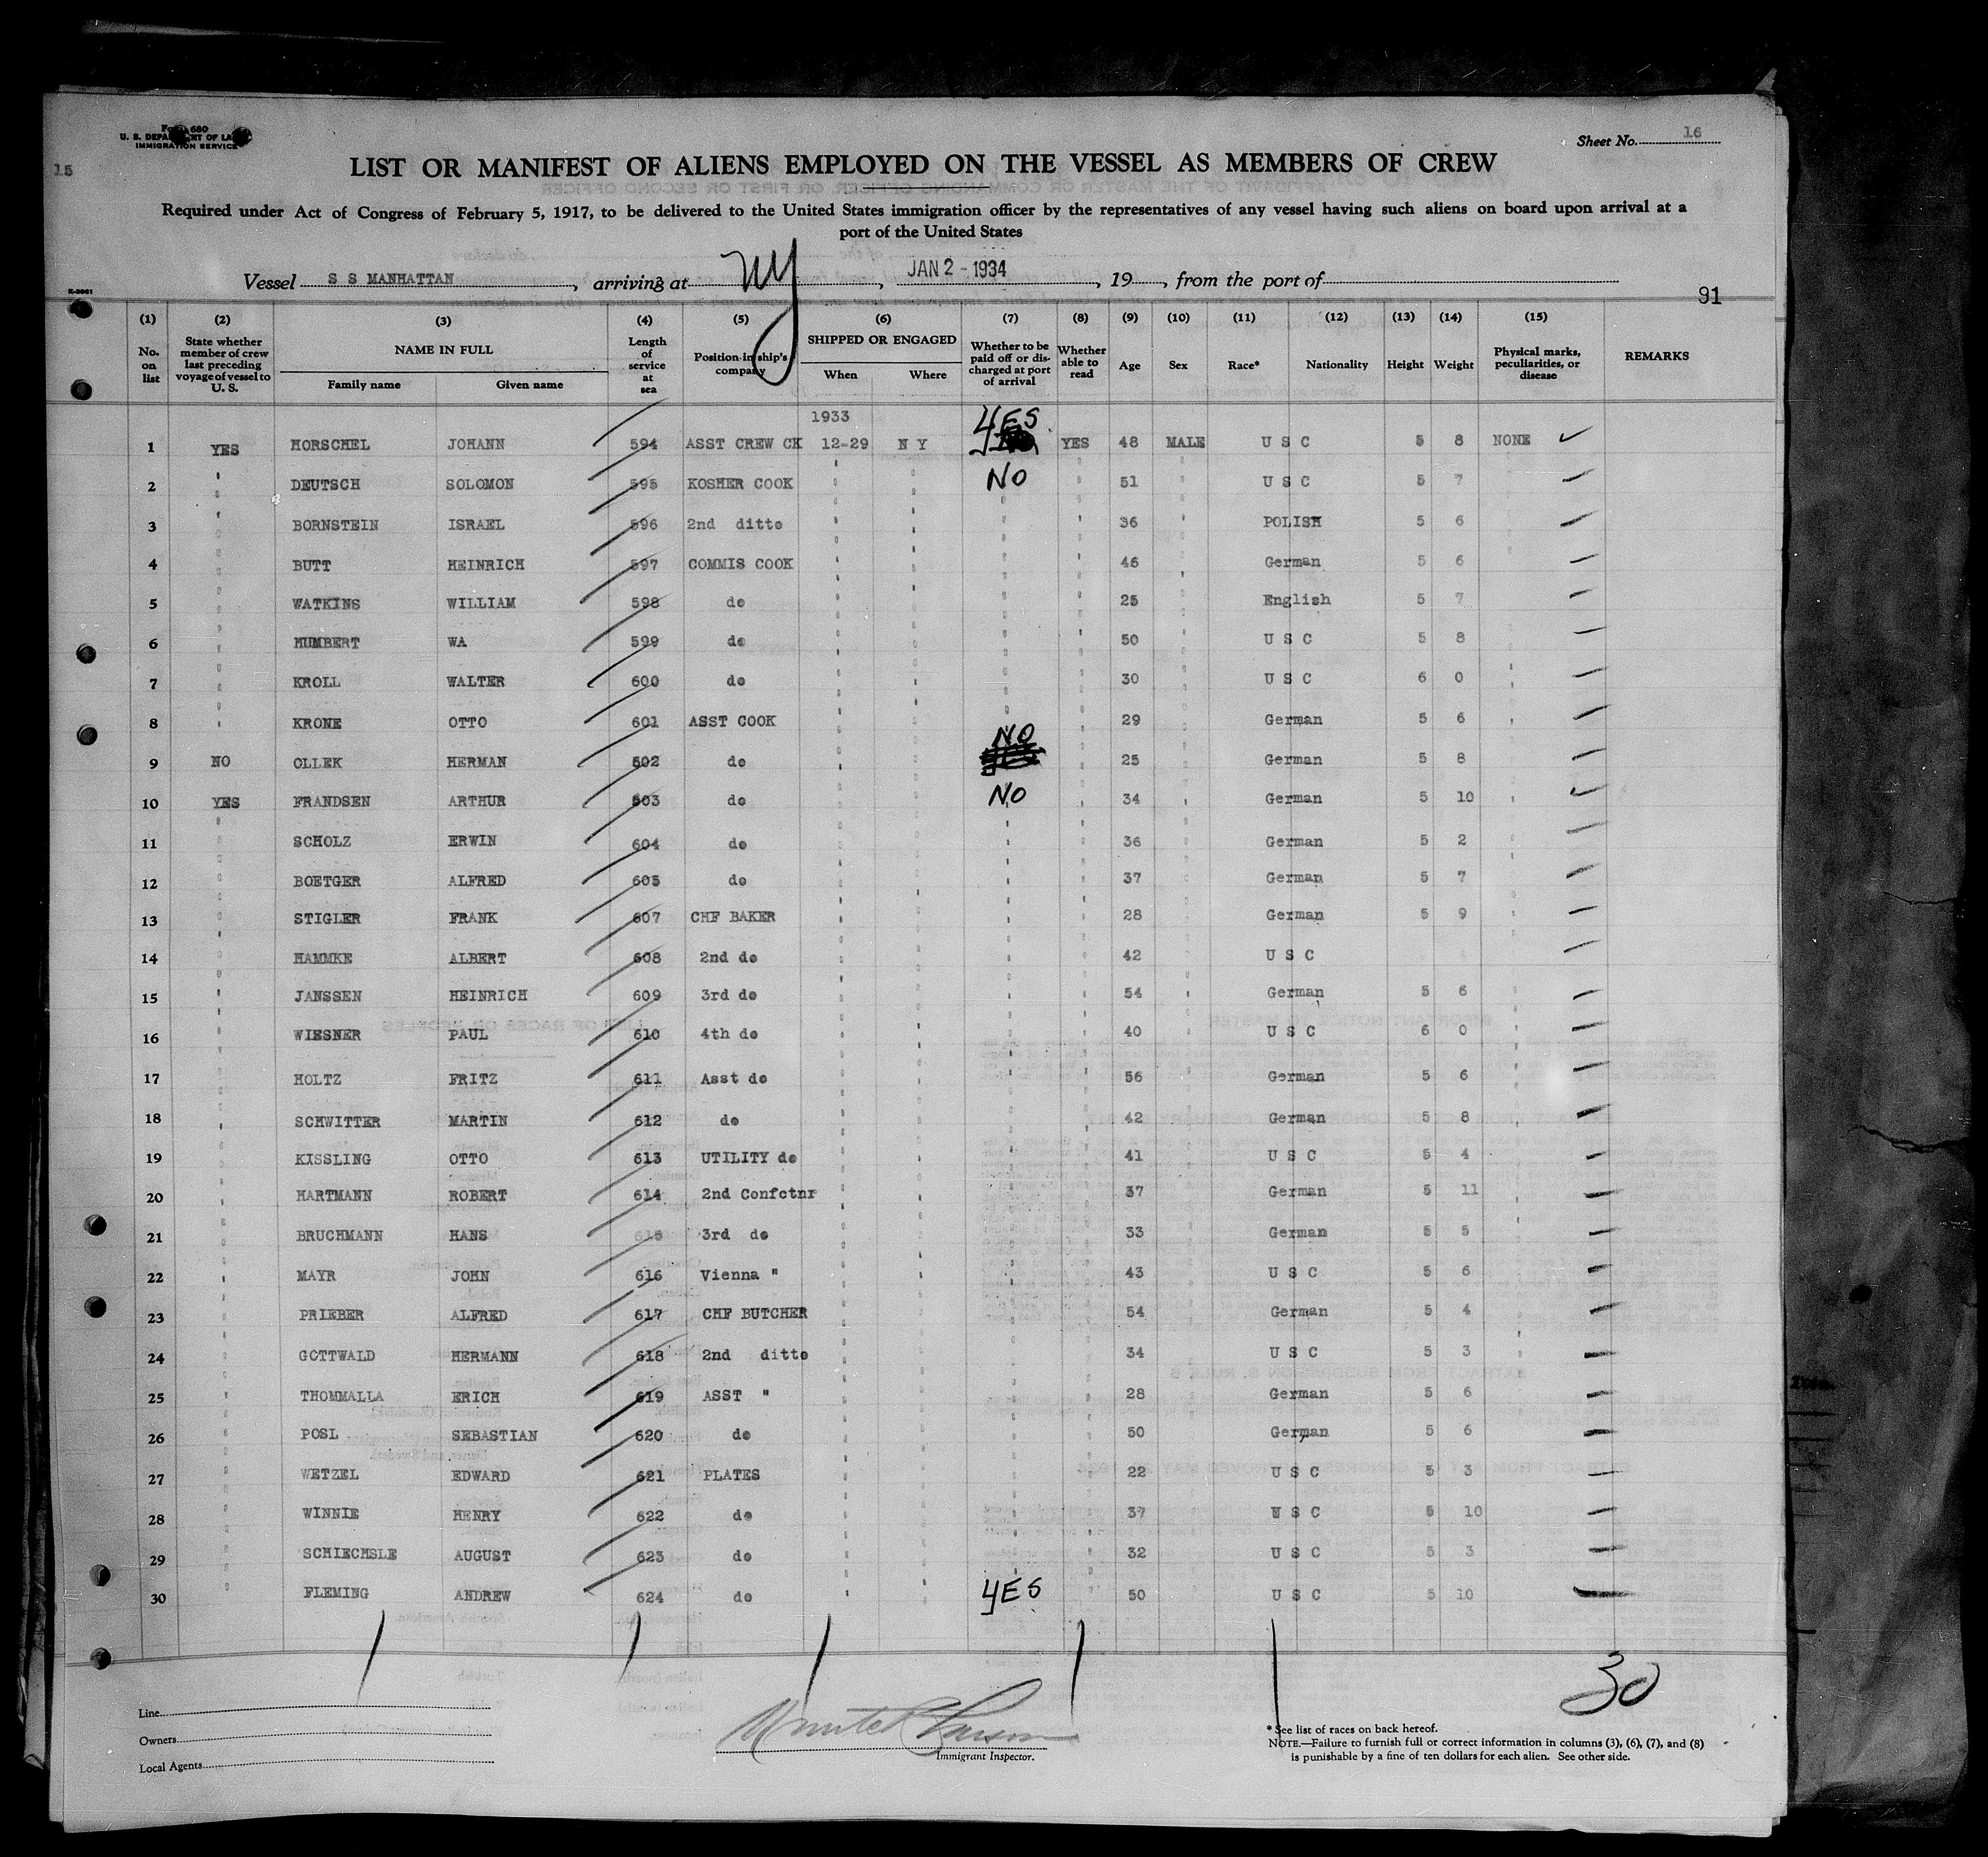 Form 680
U. S. DEPARTMENT OF LABOR
IMMIGRATION SERVICE
Sheet No. 16
15
LIST OR MANIFEST OF ALIENS EMPLOYED ON THE VESSEL AS MEMBERS OF CREW
Required under Act of Congress of February 5, 1917, to be delivered to the United States immigration officer by the representatives of any vessel having such aliens on board upon arrival at a
port of the United States
Vessel S S MANHATTAN, arriving at NY, JAN 2 - 1934, 19, from the port of
91
(1) (2) (3) (4) (5) (6) (7) (8) (9) (10) (11) (12) (13) (14) (15)
No. on list State whether member of crew last preceding voyage of vessel to U. S. NAME IN FULL Family name Given name Length of service at sea Position in ship's company SHIPPED OR ENGAGED When Where Whether to be paid off or discharged at port of arrival Whether able to read Age Sex Race* Nationality Height Weight Physical marks, peculiarities, or disease REMARKS
1933
1 YES HORSCHEL JOHANN 594 ASST CREW CK 12-29 N Y YES YES 48 MALE U S C 5 8 NONE
2 " DEUTSCH SOLOMON 595 KOSHER COOK " " NO " 51 " U S C 5 7
3 " BORNSTEIN ISRAEL 596 2nd ditto " " " " 36 " POLISH 5 6
4 " BUTT HEINRICH 597 COMMIS COOK " " " " 46 " German 5 6
5 " WATKINS WILLIAM 598 do " " " " 25 " English 5 7
6 " HUMBERT WA 599 do " " " " 50 " U S C 5 8
7 " KROLL WALTER 600 do " " " " 30 " U S C 6 0
8 " KRONE OTTO 601 ASST COOK " " " " 29 " German 5 6
9 NO OLLEK HERMAN 602 do " " NO " 25 " German 5 8
10 YES FRANDSEN ARTHUR 603 do " " NO " 34 " German 5 10
11 " SCHOLZ ERWIN 604 do " " " " 36 " German 5 2
12 " BOETGER ALFRED 605 do " " " " 37 " German 5 7
13 " STIGLER FRANK 607 CHF BAKER " " " " 28 " German 5 9
14 " HAMMKE ALBERT 608 2nd do " " " " 42 " U S C
15 " JANSSEN HEINRICH 609 3rd do " " " " 54 " German 5 6
16 " WIESNER PAUL 610 4th do " " " " 40 " U S C 6 0
17 " HOLTZ FRITZ 611 Asst do " " " " 56 " German 5 6
18 " SCHWITTER MARTIN 612 do " " " " 42 " German 5 8
19 " KISSLING OTTO 613 UTILITY do " " " " 41 " U S C 5 4
20 " HARTMANN ROBERT 614 2nd Confctnr " " " " 37 " German 5 11
21 " BRUCHMANN HANS 615 3rd do " " " " 33 " German 5 5
22 " MAYR JOHN 616 Vienna " " " " " 43 " U S C 5 6
23 " PRIEBER ALFRED 617 CHF BUTCHER " " " " 54 " German 5 4
24 " GOTTWALD HERMANN 618 2nd ditto " " " " 34 " U S C 5 3
25 " THOMMALLA ERICH 619 ASST " " " " " 28 " German 5 6
26 " POSL SEBASTIAN 620 do " " " " 50 " German 5 6
27 " WETZEL EDWARD 621 PLATES " " " " 22 " U S C 5 3
28 " WINNIE HENRY 622 do " " " " 37 " U S C 5 10
29 " SCHIECHSLE AUGUST 623 do " " " " 32 " U S C 5 3
30 " FLEMING ANDREW 624 do " " YES " 50 " U S C 5 10
30
Line
Owners
Local Agents
Immigrant Inspector.
* See list of races on back hereof.
NOTE.—Failure to furnish full or correct information in columns (3), (6), (7), and (8)
is punishable by a fine of ten dollars for each alien. See other side.